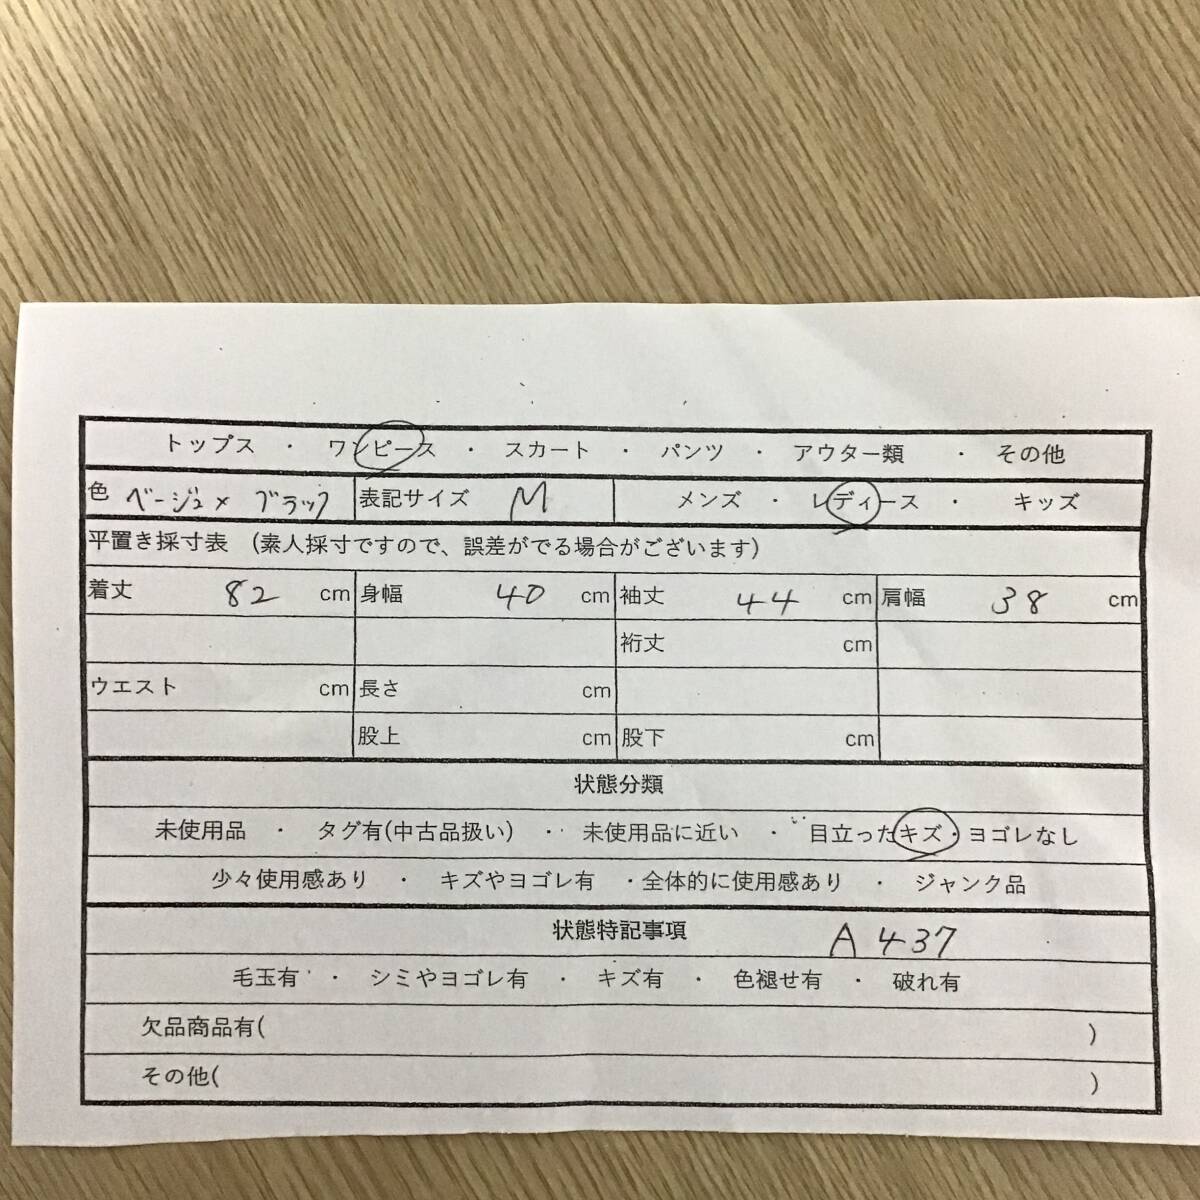 トップス ・ ワンピース ・ スカート ・ パンツ ・ アウター類 ・ その他
色 ベージュ× ブラック 表記サイズ M メンズ ・ レディース ・ キッズ
平置き採寸表 (素人採寸ですので、誤差がでる場合がございます)
着丈 82 cm 身幅 40 cm 袖丈 44 cm 肩幅 38 cm
裄丈 cm
ウエスト cm 長さ cm
股上 cm 股下 cm
状態分類
未使用品 ・ タグ有(中古品扱い) ・ 未使用品に近い ・ 目立ったキズ・ヨゴレなし
少々使用感あり ・ キズやヨゴレ有 ・全体的に使用感あり ・ ジャンク品
状態特記事項 A437
毛玉有 ・ シミやヨゴレ有 ・ キズ有 ・ 色褪せ有 ・ 破れ有
欠品商品有( )
その他( )